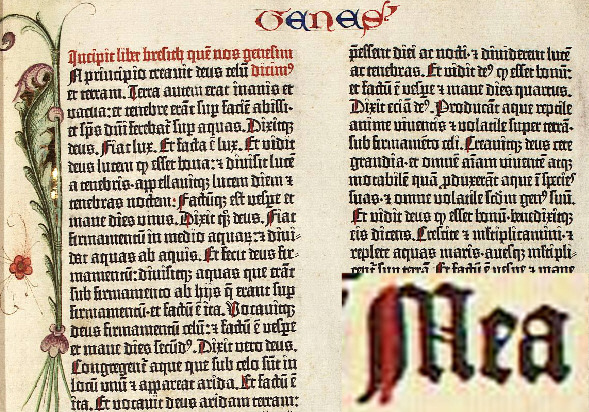 Geneſ
Incipit liber breſith quē nos geneſim
A principio creavit deus celū dicim⁹
et terram. Terra autem erat inanis et
vacua: et tenebre erāt ſup faciē abiſſi·
et ſpūs dñi ferebat ſup aquas. Dixitqꝫ
deus. Fiat lux. Et facta ē lux. Et vidit
deus lucem ꝙ eſſet bona: ⁊ diviſit lucē
a tenebris· appellavitqꝫ lucem diem ⁊
tenebras noctem: Factūqꝫ eſt veſpe et
mane dies unus. Dixit qꝫ deus. Fiat
firmamentū in medio aquaꝝ: ⁊ divi⸗
dat aquas ab aquis. Et fecit deus fir⸗
mamentū: diviſitqꝫ aquas que erāt
ſub firmamento ab hijs ꝗ erant ſup
firmamentū: et factū ē ita. Vocavitqꝫ
deus firmamentū celū: ⁊ factū ē veſpe
et mane dies ſecūd⁹. Dixit vero deus.
Congregent aque que ſub celo ſūt in
locū unū ⁊ appareat arida. Et factū ē
ita. Et vocavit deus aridam terram:
p̄eſſent diei ac nocti: ⁊ dividerent lucē
ac tenebras. Et vidit de⁹ ꝙ eſſet bonū:
et factū ē veſpe ⁊ mane dies quartus.
Dixit eciā de⁹. Producant aque reptile
anime viventis ⁊ volatile ſuper terrā·
ſub firmamēto celi. Creavitqꝫ deus cete
grandia· et omnē aīam viventē atqꝫ
motabilē quā ꝓduxerāt aque ī ſpecies
ſuas· ⁊ omne volatile ſcdm gen⁹ ſuū.
Et vidit deus ꝙ eſſet bonū· benedixitqꝫ
eis dicens. Creſcite ⁊ mltiplicamini· ⁊
replete aquas maris· aveſqꝫ mltipli⸗
cent ſup terrā. Et factū ē veſpe ⁊ mane
Mea